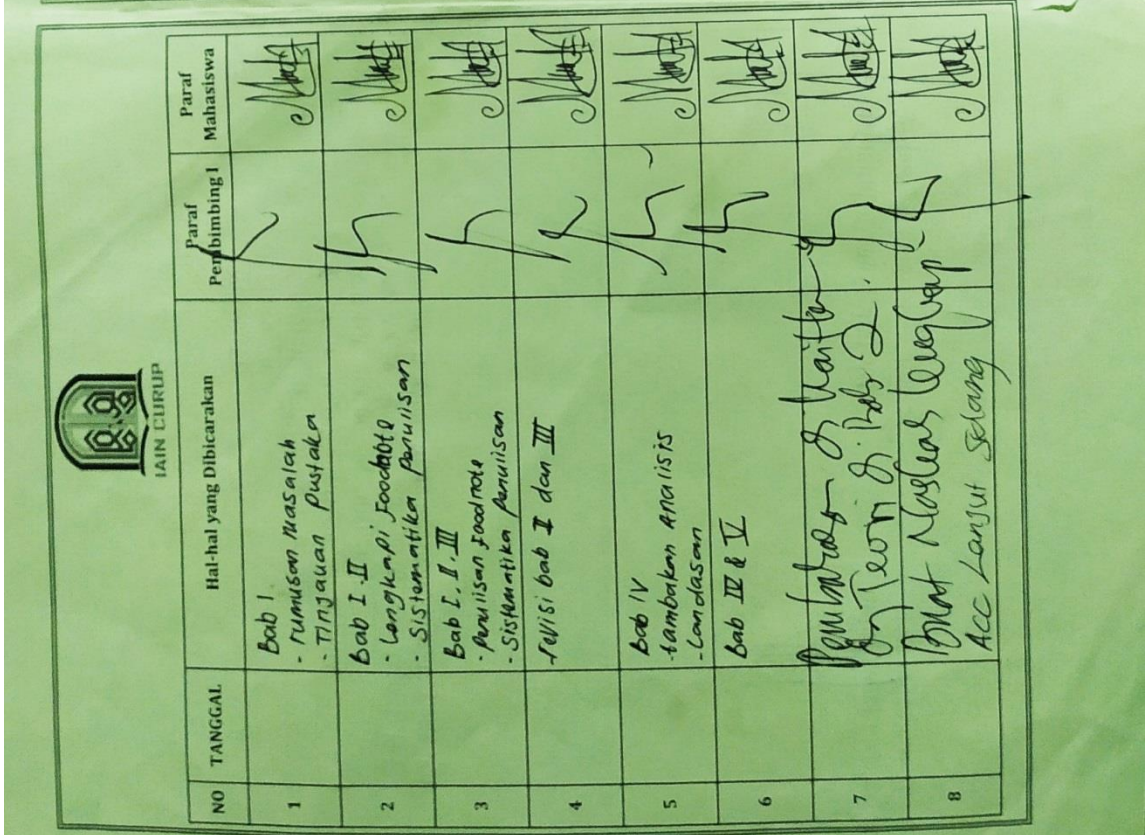 IAIN CURUP
NO TANGGAL Hal-hal yang Dibicarakan Paraf Pembimbing I Paraf Mahasiswa
1 Bab I
- rumusan masalah
- Tinjauan pustaka
2 Bab I. II
- Lengkapi foodnote
- Sistematika penulisan
3 Bab I. II. III
- penulisan foodnote
- Sistematika penulisan
4 -revisi bab II dan III
5 Bab IV
-tambakan analisis
-Landasan
6 Bab IV & V
7 Pembahasan di kaitkan
dg Teori di Bab 2.
8 Buat Naskas lengkap
Acc Lanjut Sidang